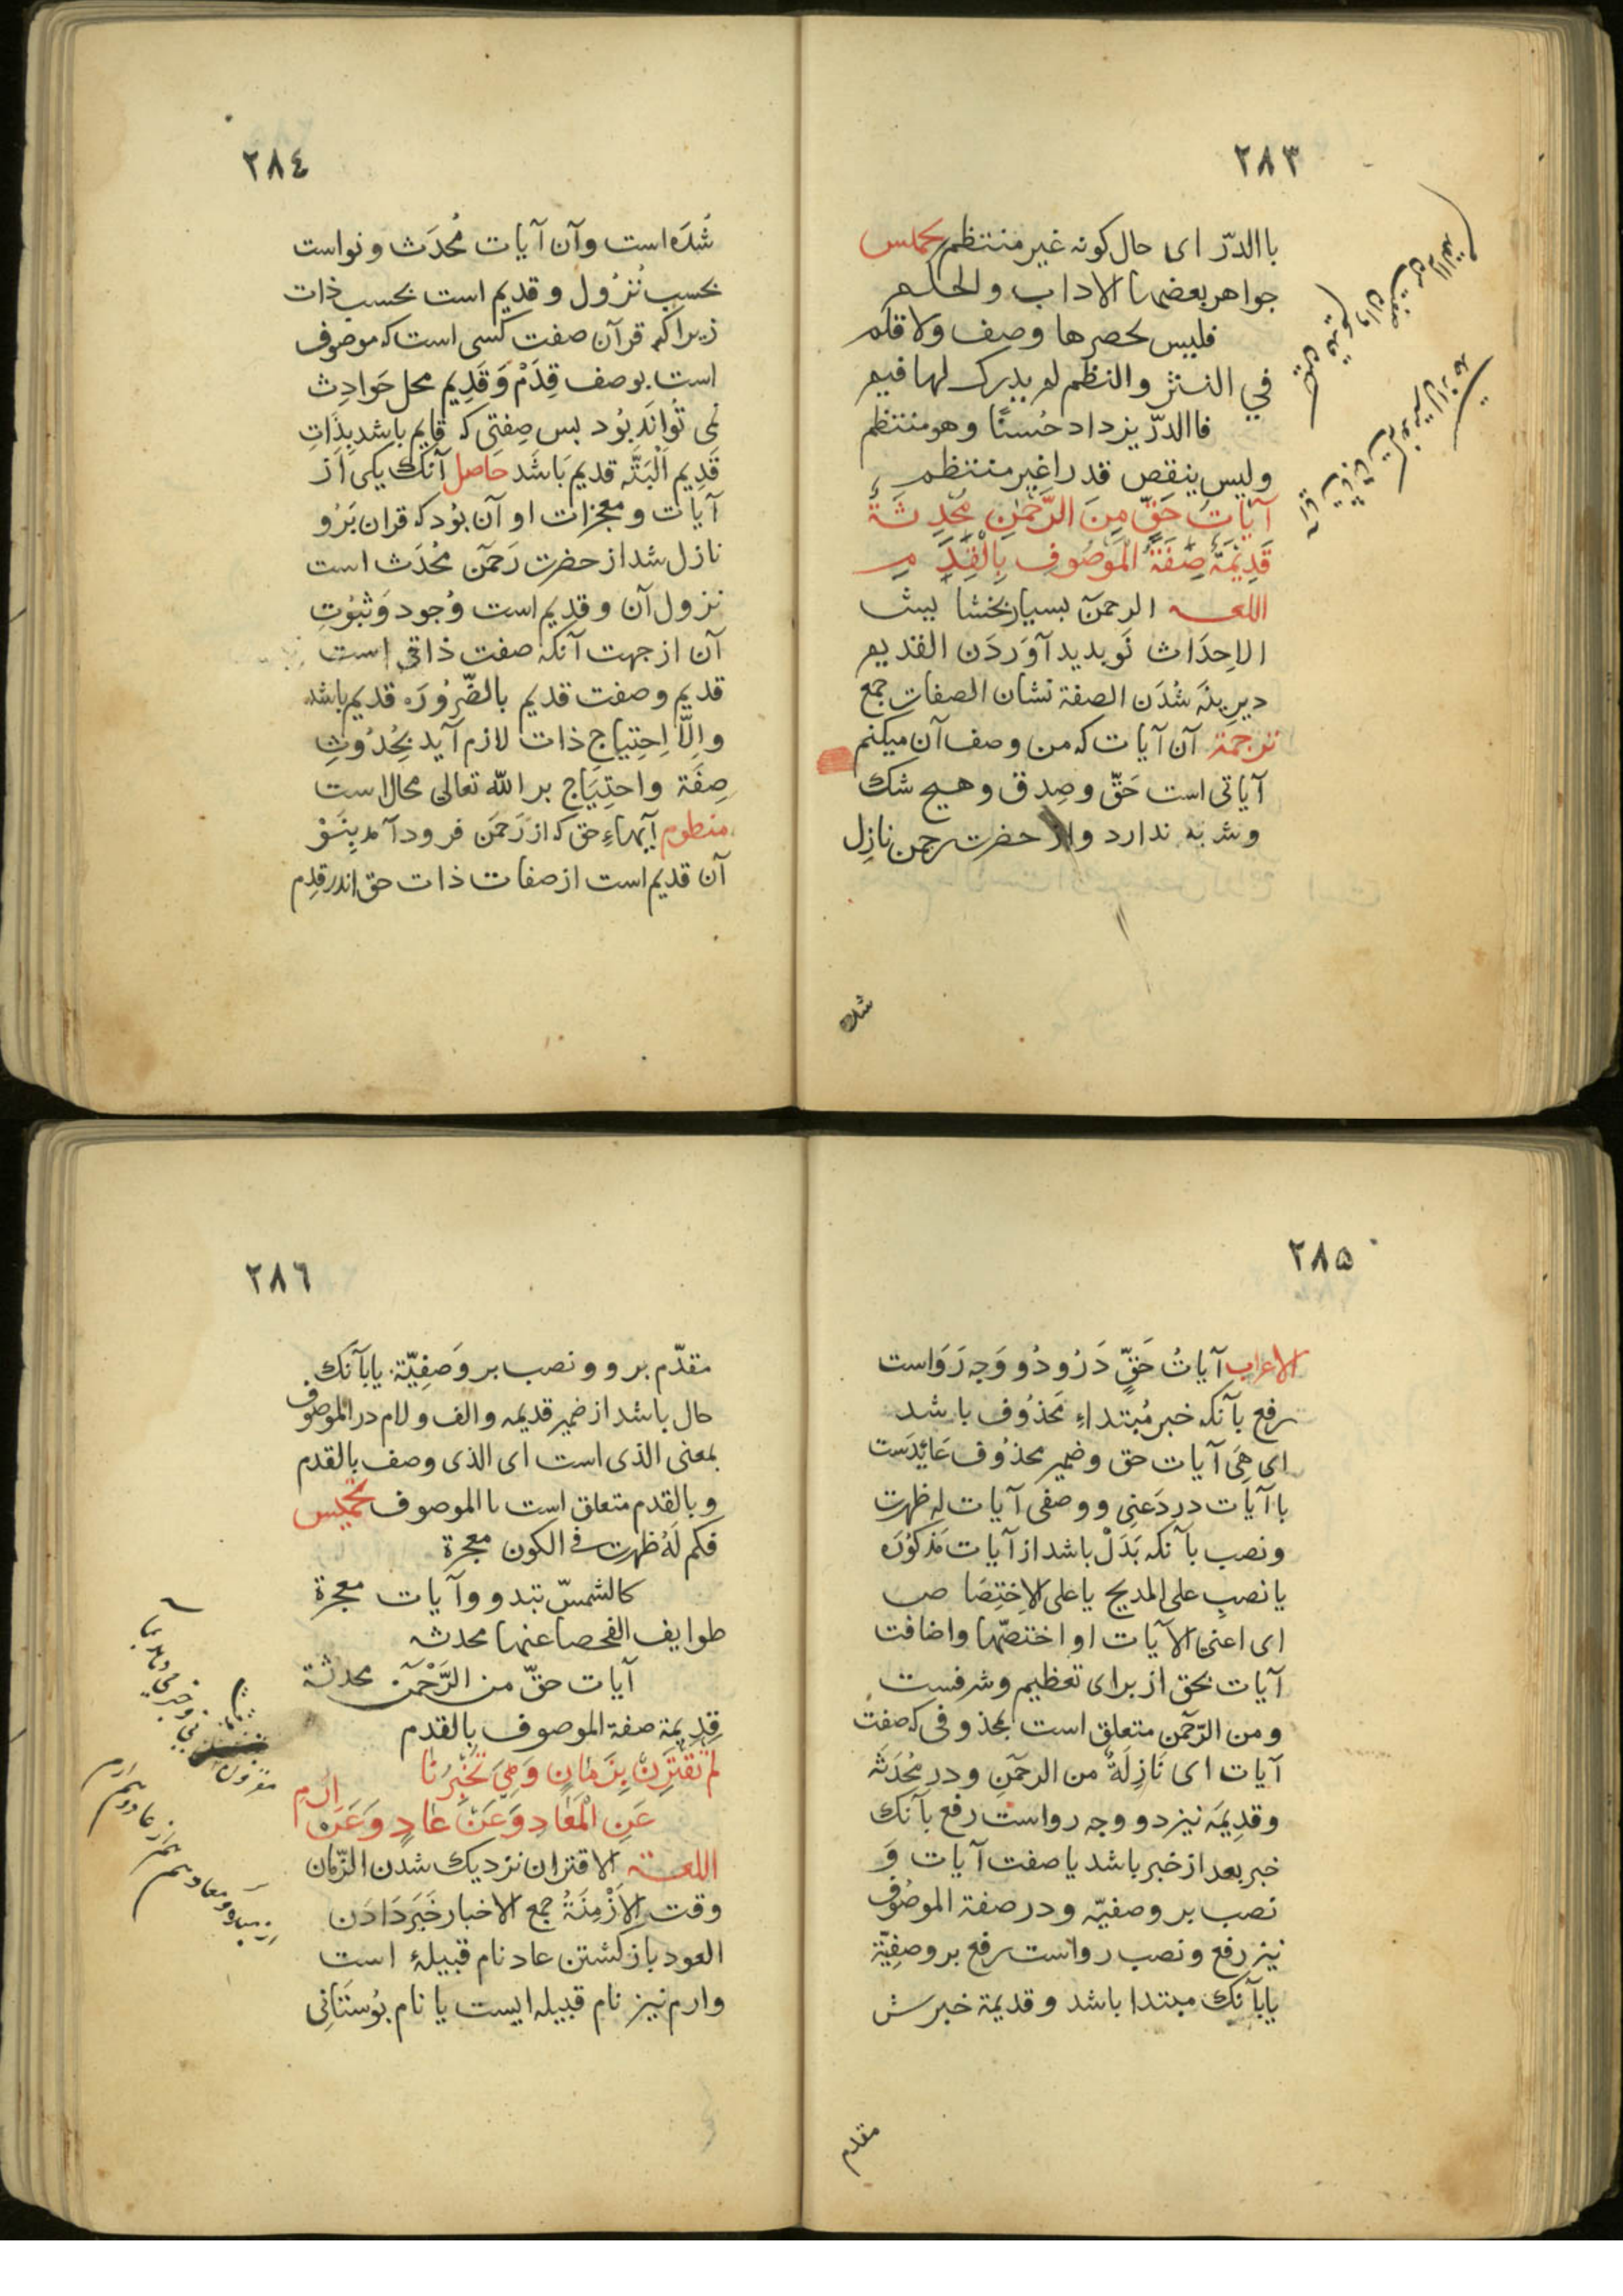 ٢٨٣
باالدرّ ای حال کونه غیر منتظم تخمیس
جواهر بعضها الاداب والحلم
فلیس یحصرها وصف ولا قلم
في النثر والنظم لم یدرک لها قیم
فاالدرّ یزداد حُسنًا وهو منتظم
ولیس ینقص قدرا غیر منتظم
آیَاتُ حَقٍّ مِنَ الرَّحْمٰنِ مُحْدَثَةٌ
قَدِیْمَةٌ صِفَةُ الْمَوْصُوفِ بِالْقِدَمِ
اللغه الرحمن بسیار بخشا ییش
الاِحدَاث نَو بدید آوَردَن القدیم
دیرینَه شُدَن الصفة نشان الصفات جمع
ترجمة آن آیات که من وصف آن میکنم
آیاتی است حَقّ و صِدق و هیچ شک
وشبه ندارد واز حضرت رحمن نازِل
شده
٢٨٤
شُدَه است و آن آیات مُحدَث و نواست
بحسب نُزول و قدیم است بحسب ذات
زیراکه قرآن صفت کسی است که موصوف
است بوصف قِدَمْ وَ قَدِیم محل حَوادِث
نمی تُوانَد بُود بس صِفتی که قایم باشد بِذَاتِ
قَدِیم اَلْبَتَّه قدیم بَاشَد حَاصل آنک یکی اَز
آیات و معجزات او آن بُود که قران بَرُو
نازل شد از حضرت رَحمَن مُحْدَث است
نزول آن و قدیم است وُجود وَ ثبُوتِ
آن از جهت آنکه صفت ذاتی است
قدیم و صفت قدیم بالضّرُورَه قدیم باشد
واِلّا اِحتِیاجِ ذات لازم آید بِحُدُوثِ
صِفَة واحتِیَاج بر الله تعالی محال است
منظوم آیهاءِ حق که از رَحمَن فرود آمد بِنَوْ
آن قدیم است از صفات ذات حق اندر قِدم
٢٨٥
الاعراب آیاتُ حَقٍّ دَرُو دُو وَجه رَوَاست
رفع بآنکه خبر مُبتداءِ مَحذُوف باشد
ای هِیَ آیات حق و ضمیر محذُوف عَائِدَست
باآیات در دَعنِی ووصفی آیات له ظهرت
ونصب بآنکه بَدَلْ باشد از آیات مَذکوُرَه
یا نصبِ علی المدیح یا علی الاِختِصَا ص
ای اعنی الآیات او اختصّها واضافت
آیات بحق از برای تعظیم وشرفست
ومن الرّحمن متعلق است بمحذوفی که صفت
آیات ای نَازِلَةٌ من الرحمَن ودر مُحْدَثَه
وقدِیمَه نیز دو وجه رواست رفع بآنک
خبر بعد از خبر باشد یا صفت آیات وَ
نصب بر وصفیّه ودر صفة الموصُوف
نیز رفع ونصب رواست رفع بر وصفِیّة
یا بآنک مبتدا باشد و قدیمة خبرش
مقدم
٢٨٦
مقدّم برو و نصب بر وَصفِیّة یا بآنَک
حال باشد از ضمیر قدیمه والف ولام در الموصُوف
بمعنی الذی است ای الذی وصف بالقدم
وبالقدم متعلق است باالموصوف تخمیس
فکم لَهُ ظهرت فی الکون معجزة
کالشمسّ تبدو وآیات معجزة
طوایف الفحصا عنها محدثه
آیات حقّ من الرَّحْمَن محدثة
قدِیمة صفة الموصوف بالقدم
لَمْ تَقْتَرِنْ بِزَمَانٍ وَهِيَ تُخْبِرُنَا
عَنِ الْمَعَادِ وَعَنْ عَادٍ وَعَنْ اِرَمِ
اللغة الاقتران نزدیک شدن الزّمان
وقت الاَزْمِنَةُ جمع الاخبار خَبَر دَادَن
العود باز کشتن عاد نام قبیلهٔ است
وارم نیز نام قبیله ایست یا نام بُوستَانی